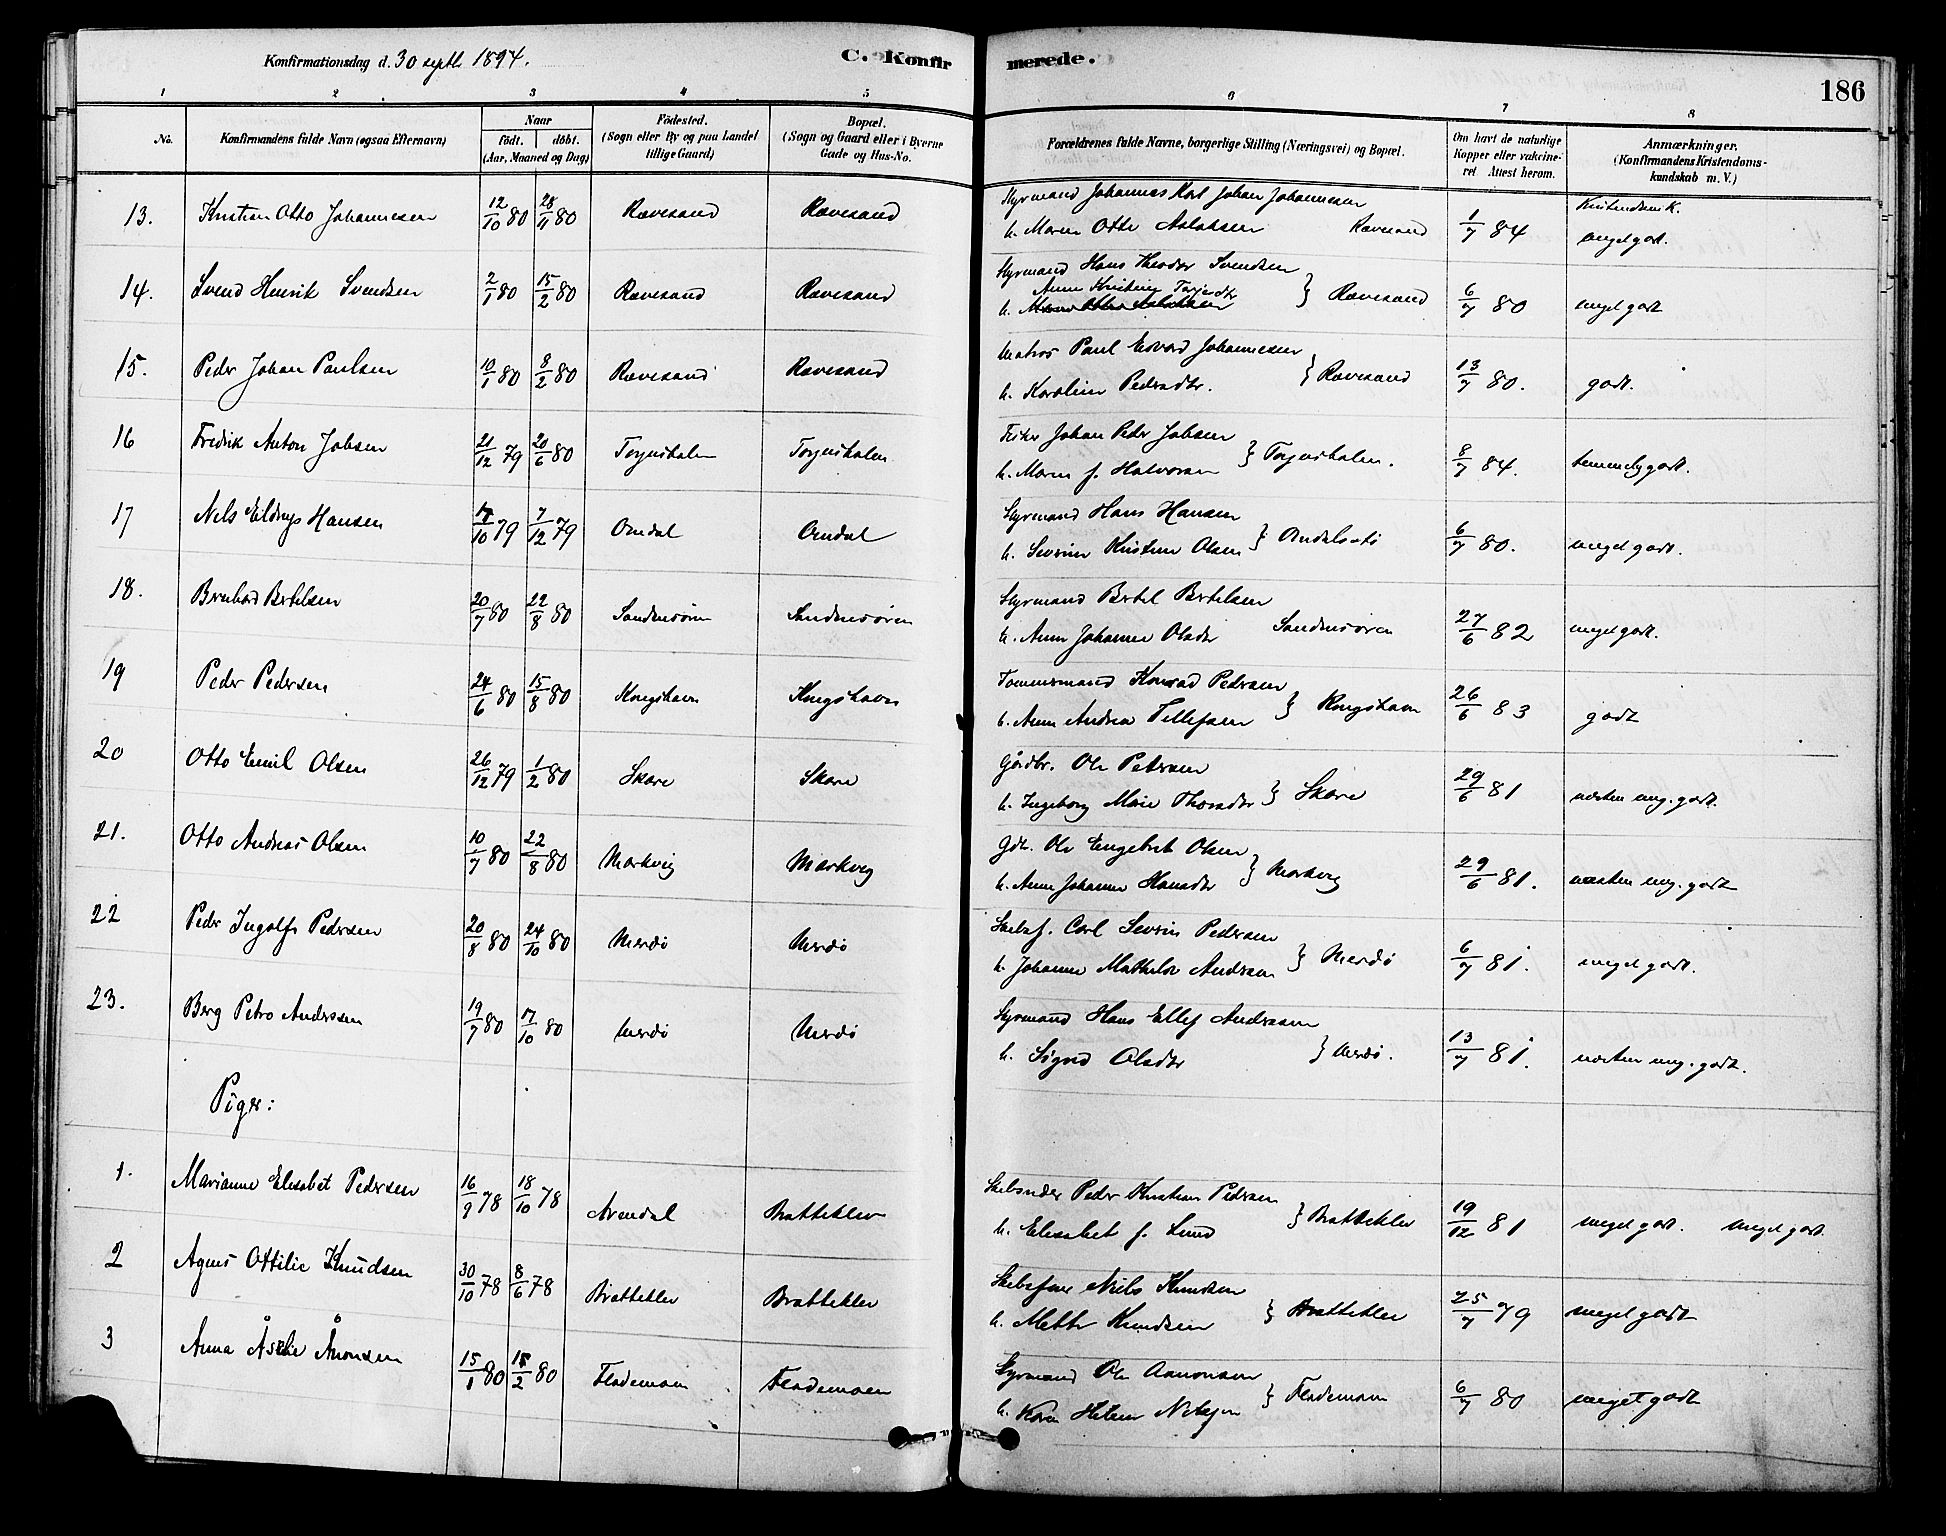 Konfirmationsdag d. 30 septb 1894.
C. Konfirmerede.
186
1 2 3 4 5 6 7 8
No.
Konfirmandens fulde Navn (ogsaa Efternavn)
Naar født. døbt. (Aar, Maaned og Dag)
Fødested. (Sogn eller By og paa Landet tillige Gaard)
Bopæl. (Sogn og Gaard eller i Byerne Gade og Hus-No.
Forældrenes fulde Navne, borgerlige Stilling (Næringsvei) og Bopæl.
Om havt de naturlige Kopper eller vakcineret Attest herom.
Anmærkninger. (Konfirmandens Kristendomskundskab m. V.)
13. Kristian Otto Johannesen 12/10 80 28/11 80 Rævesand Rævesand Styrmand Johannes Karl Johan Johannesen
h. Maren Otte Aslaksen Rævesand 1/7 84 meget godt.
14. Svend Henrik Svendsen 2/1 80 15/2 80 Rævesand Rævesand Styrmand Hans Theodor Svendsen
Anne Kristine Torjesdtr
h. } Rævesand 6/7 80 meget godt
15. Peder Johan Paulsen 10/1 80 8/2 80 Rævesand Rævesand Matros Paul Edvard Johannesen
h. Karoline Pedersdtr. } Rævesand 13/7 80. godt.
16 Fredrik Anton Jobsen 21/12 79 20/6 80 Torjusholm Torjusholm Fisker Johan Peder Jobsen
h. Maren f. Halvorsen } Torjusholm. 8/7 84. temmelig godt.
17 Nels Eldrup Hansen 17/10 79 7/12 79 Omdal Omdal Styrmand Hans Hansen
h. Severine Kristine Olsen } 6/7 80. meget godt.
18. Bernhard Bertelsen 20/7 80 22/8 80 Sandumsøren Sandumsøren Styrmand Bertel Bertelsen
h. Anne Johanne Olsdtr Sandumsøren 27/6 82 meget godt.
19 Peder Pedersen 24/6 80 15/8 80 Kongshavn Kongshavn Tømmermand Konrad Pedersen
h. Anne Andrea Tellefsen } Kongshavn 26/6 83 godt
20 Otto Emil Olsen 26/12 79 1/2 80 Skare Skare Gårdbr. Ole Petersen
h. Ingeborg Marie Thorsdtr } Skare 29/6 81 næsten meg. godt.
21. Otto Andreas Olsen 10/7 80 22/8 80 Markvig Markvig Gdb. Ole Engebret Olsen
h. Anne Johanne Hansdtr } Markvig 29/6 81. næsten meg. godt
22 Peder Ingolf Pedersen 20/8 80 24/10 80 Merdø Merdø Skibsf. Carl Severin Pedersen
h. Johanne Mathilde Andersen } Merdø 6/7 81. meget godt.
23. Berg Petro Anderssen 19/7 80 17/10 80 Merdø Merdø Styrmand Hans Ellef Anderssen
h. Sigrid Olsdtr } Merdø. 13/7 81. næsten meg. godt.
Piger:
1. Marianne Elesabet Pedersen 16/9 78 18/10 78 Arendal Brattekler Peder Kristian Pedersen
h. Elesabet f. Lund } Brattekler 19/12 81 meget godt. meget godt.
2 Agnes Ottilie Knudsen 30/10 78 8/6 78 Brattekler Brattekler Skibsfører Niels Knudsen
h. Mette Knudsen } Brattekler 25/7 79 meget godt
3 Anna Åonsen 15/1 80 15/2 80 Flademoen Flademoen Styrmand Ole Aanonsen
h. Karen Helene } Flademoen 6/7 80 meget godt